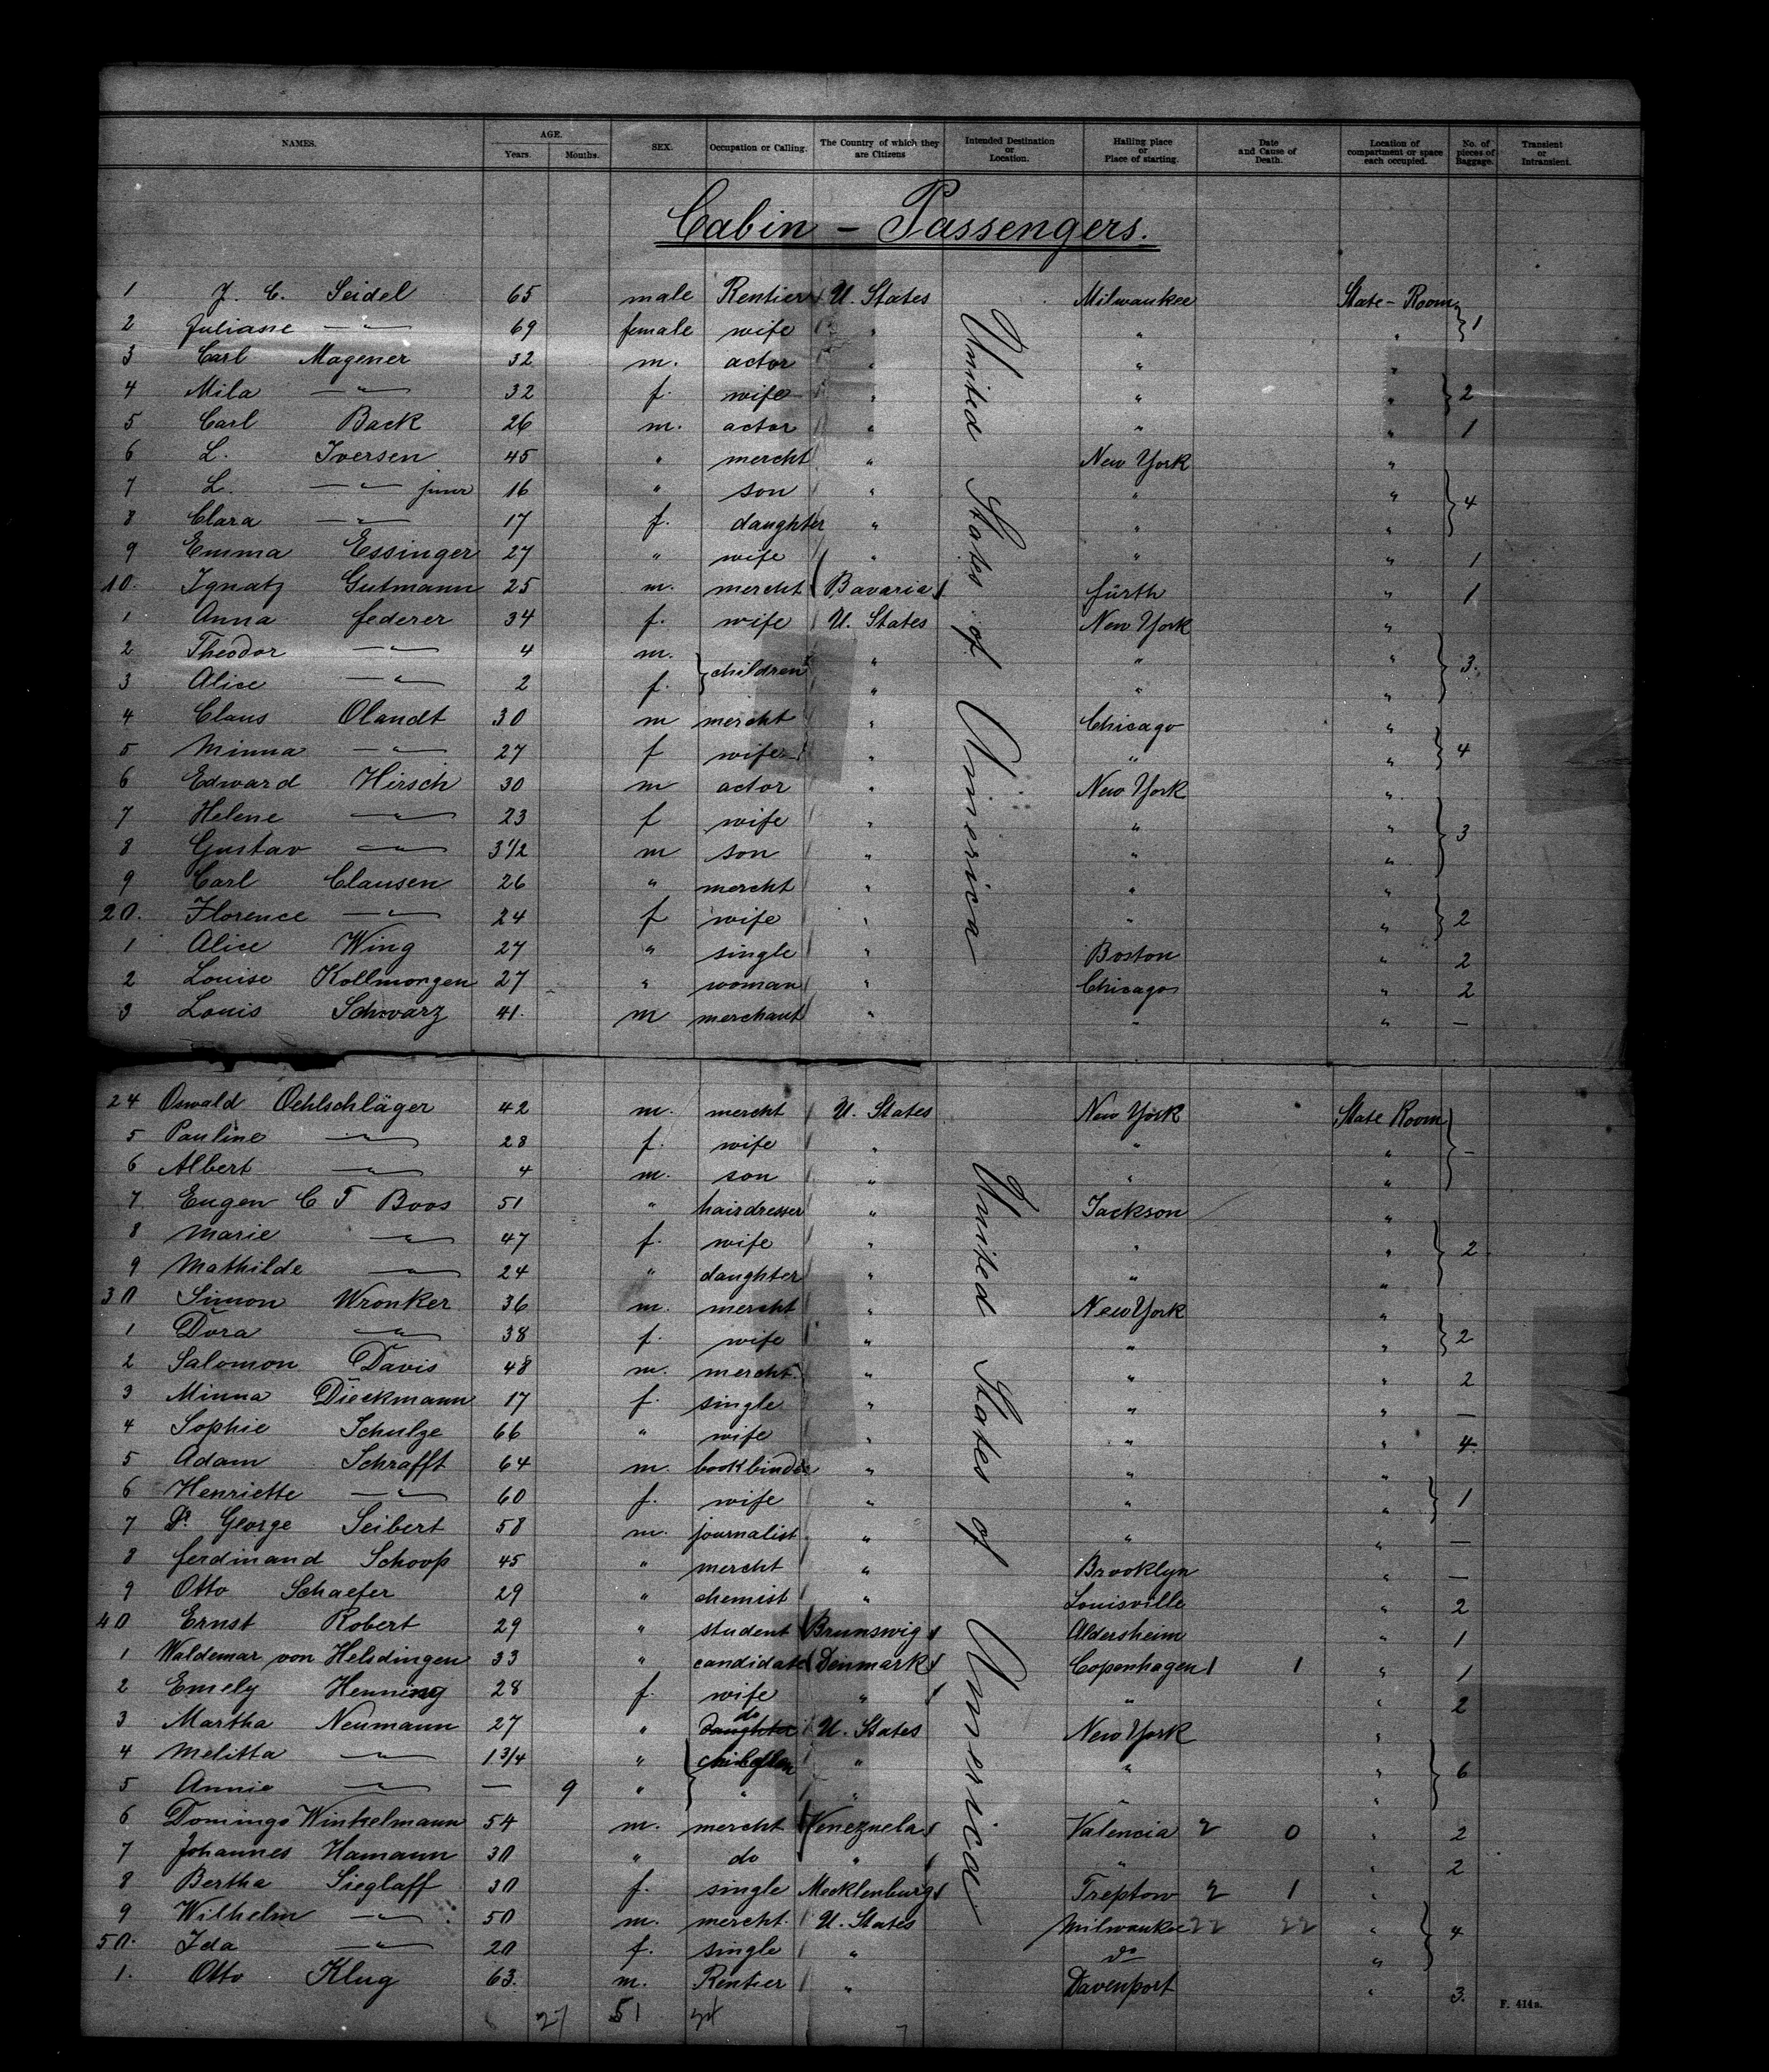 NAMES. AGE. Years. Months. SEX. Occupation or Calling. The Country of which they are Citizens Intended Destination or Location. Hailing place or Place of starting. Date and Cause of Death. Location of compartment or space each occupied. No. of pieces of Baggage. Transient or Intransient.
Cabin - Passengers.
1 J. C. Seidel 65 male Rentier U. States Milwaukee State-Room
2 Juliane —"— 69 female wife " " " } 1
3 Carl Magener 32 m. actor " " "
4 Mila —"— 32 f. wife " " " } 2
5 Carl Back 26 m. actor " " " 1
6 L. Iversen 45 " mercht " New York "
7 L. —"— junr 16 " son " " " } 4
8 Clara —"— 17 f. daughter " " "
9 Emma Essinger 27 " wife " " " 1
10. Ignatz Gutmann 25 m. mercht Bavaria fürth " 1
1 Anna federer 34 f. wife U. States New York "
2 Theodor —"— 4 m. } children " " " } 3.
3 Alice —"— 2 f. " " "
4 Claus Olandt 30 m mercht " Chicago "
5 Minna —"— 27 f wife " " " } 4
6 Edward Hirsch 30 m actor " New York "
7 Helene —"— 23 f wife " " " } 3
8 Gustav —"— 3 1/2 m son " " "
9 Carl Clausen 26 " mercht " " "
20. Florence —"— 24 f wife " " " } 2
1 Alice Wing 27 " single " Boston " 2
2 Louise Kollmorgen 27 " woman " Chicago " 2
3 Louis Schwarz 41. m merchant " " " —
United States of America
24 Oswald Oehlschläger 42 m. mercht U. States New York State Room
5 Pauline —"— 28 f. wife " " " } —
6 Albert —"— 4 m. son " " "
7 Eugen C T Boos 51 " hairdresser " Jackson "
8 Marie —"— 47 f. wife " " " } 2
9 Mathilde —"— 24 " daughter " " "
30 Simon Wronker 36 m. mercht " New York "
1 Dora —"— 38 f. wife " " " } 2
2 Salomon Davis 48 m. mercht " " " 2
3 Minna Dieckmann 17 f. single " " " —
4 Sophie Schulze 66 " wife " " " 4.
5 Adam Schrafft 64 m. bookbinder " " "
6 Henriette —"— 60 f. wife " " " } 1
7 Dr George Seibert 58 m. journalist " " " —
8 ferdinand Schoop 45 " mercht " Brooklyn " —
9 Otto Schaefer 29 " chemist " Louisville " 2
40 Ernst Robert 29 " student Brunswig Aldersheim " 1
1 Waldemar von Helsdingen 33 " candidate Denmark Copenhagen 1 " 1
2 Emely Henning 28 f. wife " " " 2
3 Martha Neumann 27 " do U. States New York "
4 Melitta —"— 1 3/4 " { children " " " } 6
5 Annie —"— — 9 " " " " "
6 Domingo Winkelmann 54 m. mercht Venezuela Valencia 2 0 " 2
7 Johannes Hamann 30 " do " " " 2
8 Bertha Sieglaff 30 f. single Mecklenburg Treptow 2 1 "
9 Wilhelm —"— 50 m. mercht. U. States Milwaukee 22 22 " } 4
50. Ida —"— 20 f. single " do "
1. Otto Klug 63. m. Rentier " Davenport " 3.
United States of America
27 51
F. 414a.